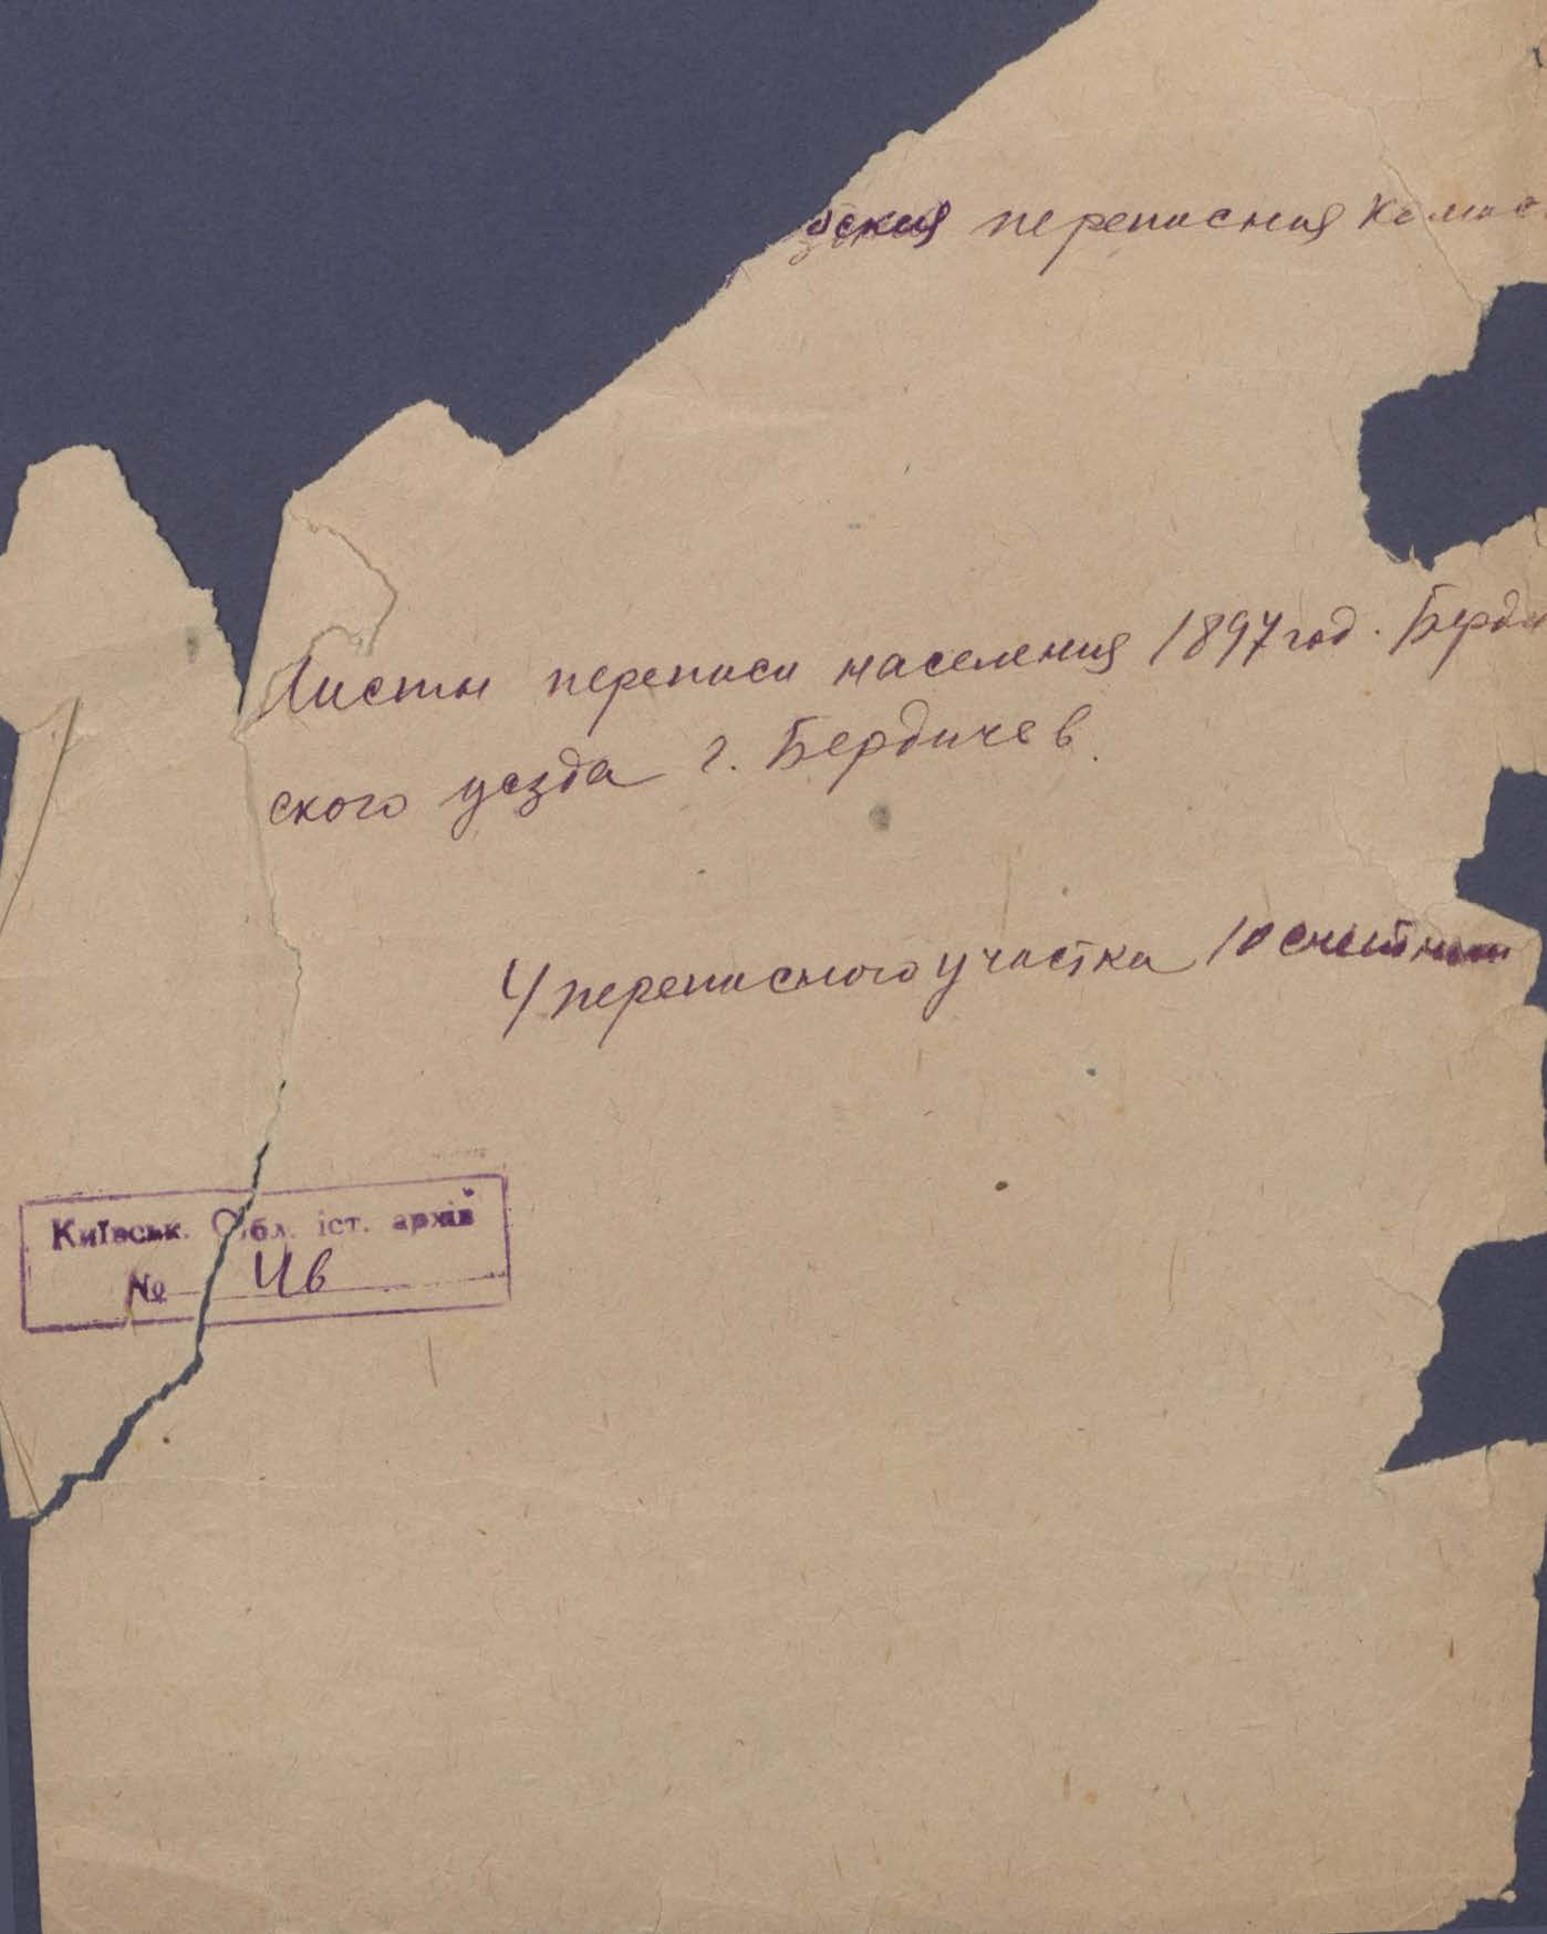 ская переписная Комис
Листы переписи населения 1897 год. Берди
ского уезда г. Бердичев.
4 переписного участка 10 счетный
Київськ. Обл. іст. архів
№ 4в